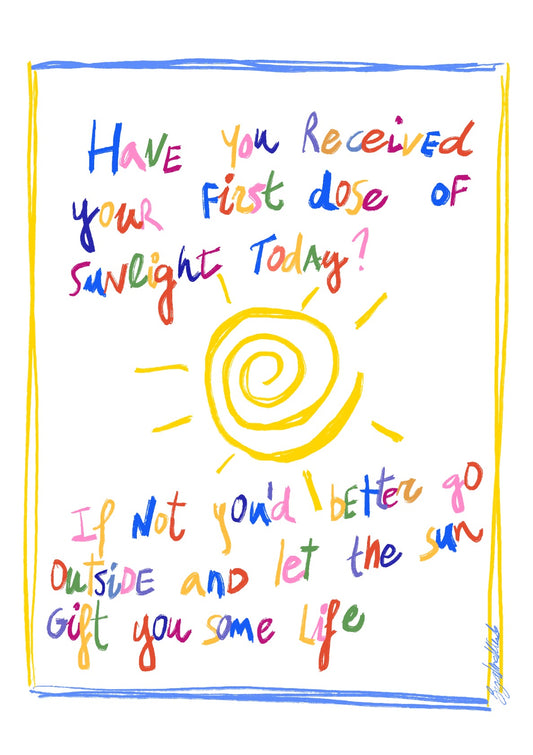 HaVE you ReceiVED
youR First dose oF
SuNlighT Today?
If Not you'd bEtter go
OutSiDE anD let the sun
Gift you Some Life